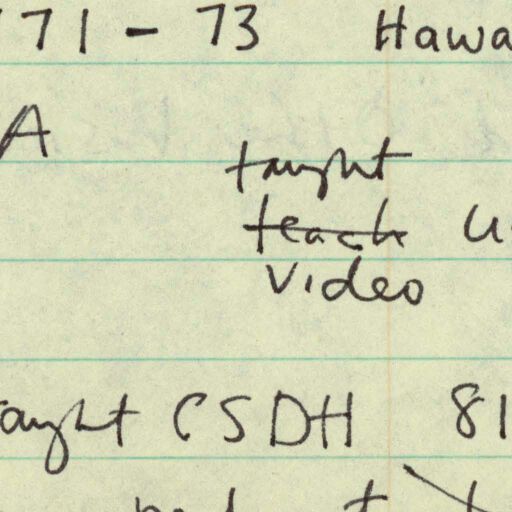 '71 - 73 Hawa
A
taught
teach U
video
aught CSDH 81